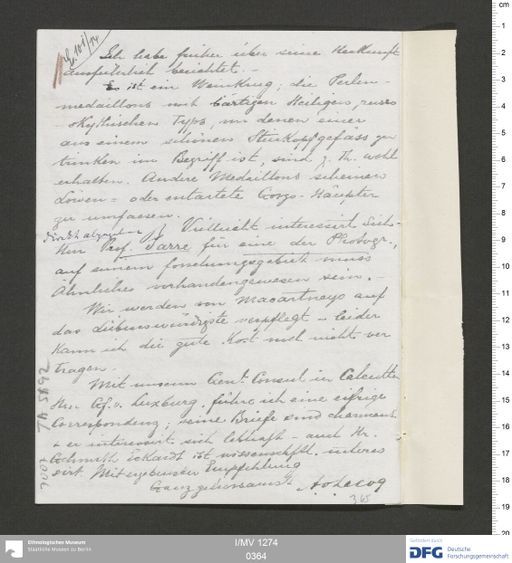 Ich habe früher über seine Herkunft
ausführlich berichtet. -
Es ist ein Weinkrug; die Perlen-
medaillons mit bärtigen Heiligen, russo
skythischen Typs, von denen einer
aus einem schönen Steinkopfgefäss zu
trinken im Begriff ist, sind z. Th. wohl
erhalten. Andere Medaillons scheinen
Löwen= oder entartete Gorgo-Häupter
zu umfassen.
Vielleicht interessirt sich
Herr Prof. Sarre für eine der Photogr.,
auf seinem Forschungsgebiet muss
Ähnliches vorhanden gewesen sein. -
Wir werden von Macartneys auf
das Liebenswürdigste verpflegt - leider
kann ich die gute Kost noch nicht ver
tragen.
Mit unserm Genl. Consul in Calcutta
Hrn. Gf. v. Luxburg, führe ich eine eifrige
Correspondenz; seine Briefe sind charmant
+ er interessirt sich lebhaft - auch Hr.
Eckardt ist wissenschftl. interes
sirt. Mit ergebenster Empfehlung
Ganz gehorsamst A v Lecoq
365
TA 5892
I/MV 1274
0364
Ethnologisches Museum
Staatliche Museen zu Berlin
Gefördert durch
DFG Deutsche
Forschungsgemeinschaft
cm
1
2
3
4
5
6
7
8
9
10
11
12
13
14
15
16
17
18
19
20